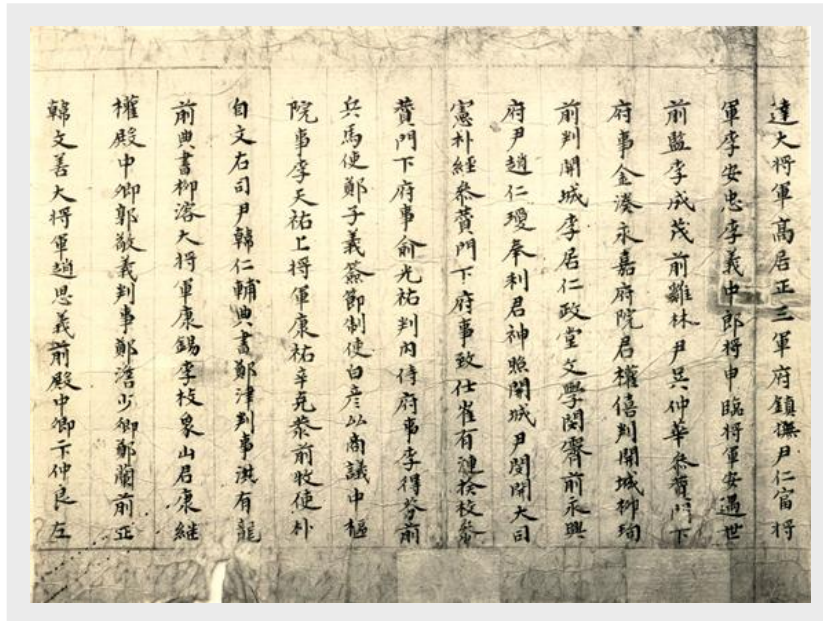 達大将軍高居正三軍府鎮撫尹仁富将
軍李安忠李義中郎将申臨将軍安遇世
前監李成茂前雞林尹吳仲華叅賛門下
府事金湊永嘉府院君權僖判開城柳珣
前判開城李居仁政堂文學閔霽前永興
府尹趙仁瓊奉利君神照開城尹閔開大司
憲朴經叅賛門下府事致仕崔有漣捡校叅
賛門下府事俞光祐判内侍府事李得芬前
兵馬使鄭子義簽節制使白彦 商議中樞
院事李天祐上将軍康祐辛克恭前牧使朴
自文右司尹韓仁輔典書鄭津判事洪有龍
前典書柳濬大将軍康錫李枝象山君康継
權殿中卿郭敬義判事鄭浩少卿鄭蘭前正
韓文善大将軍趙思義前殿中卿卞仲良左